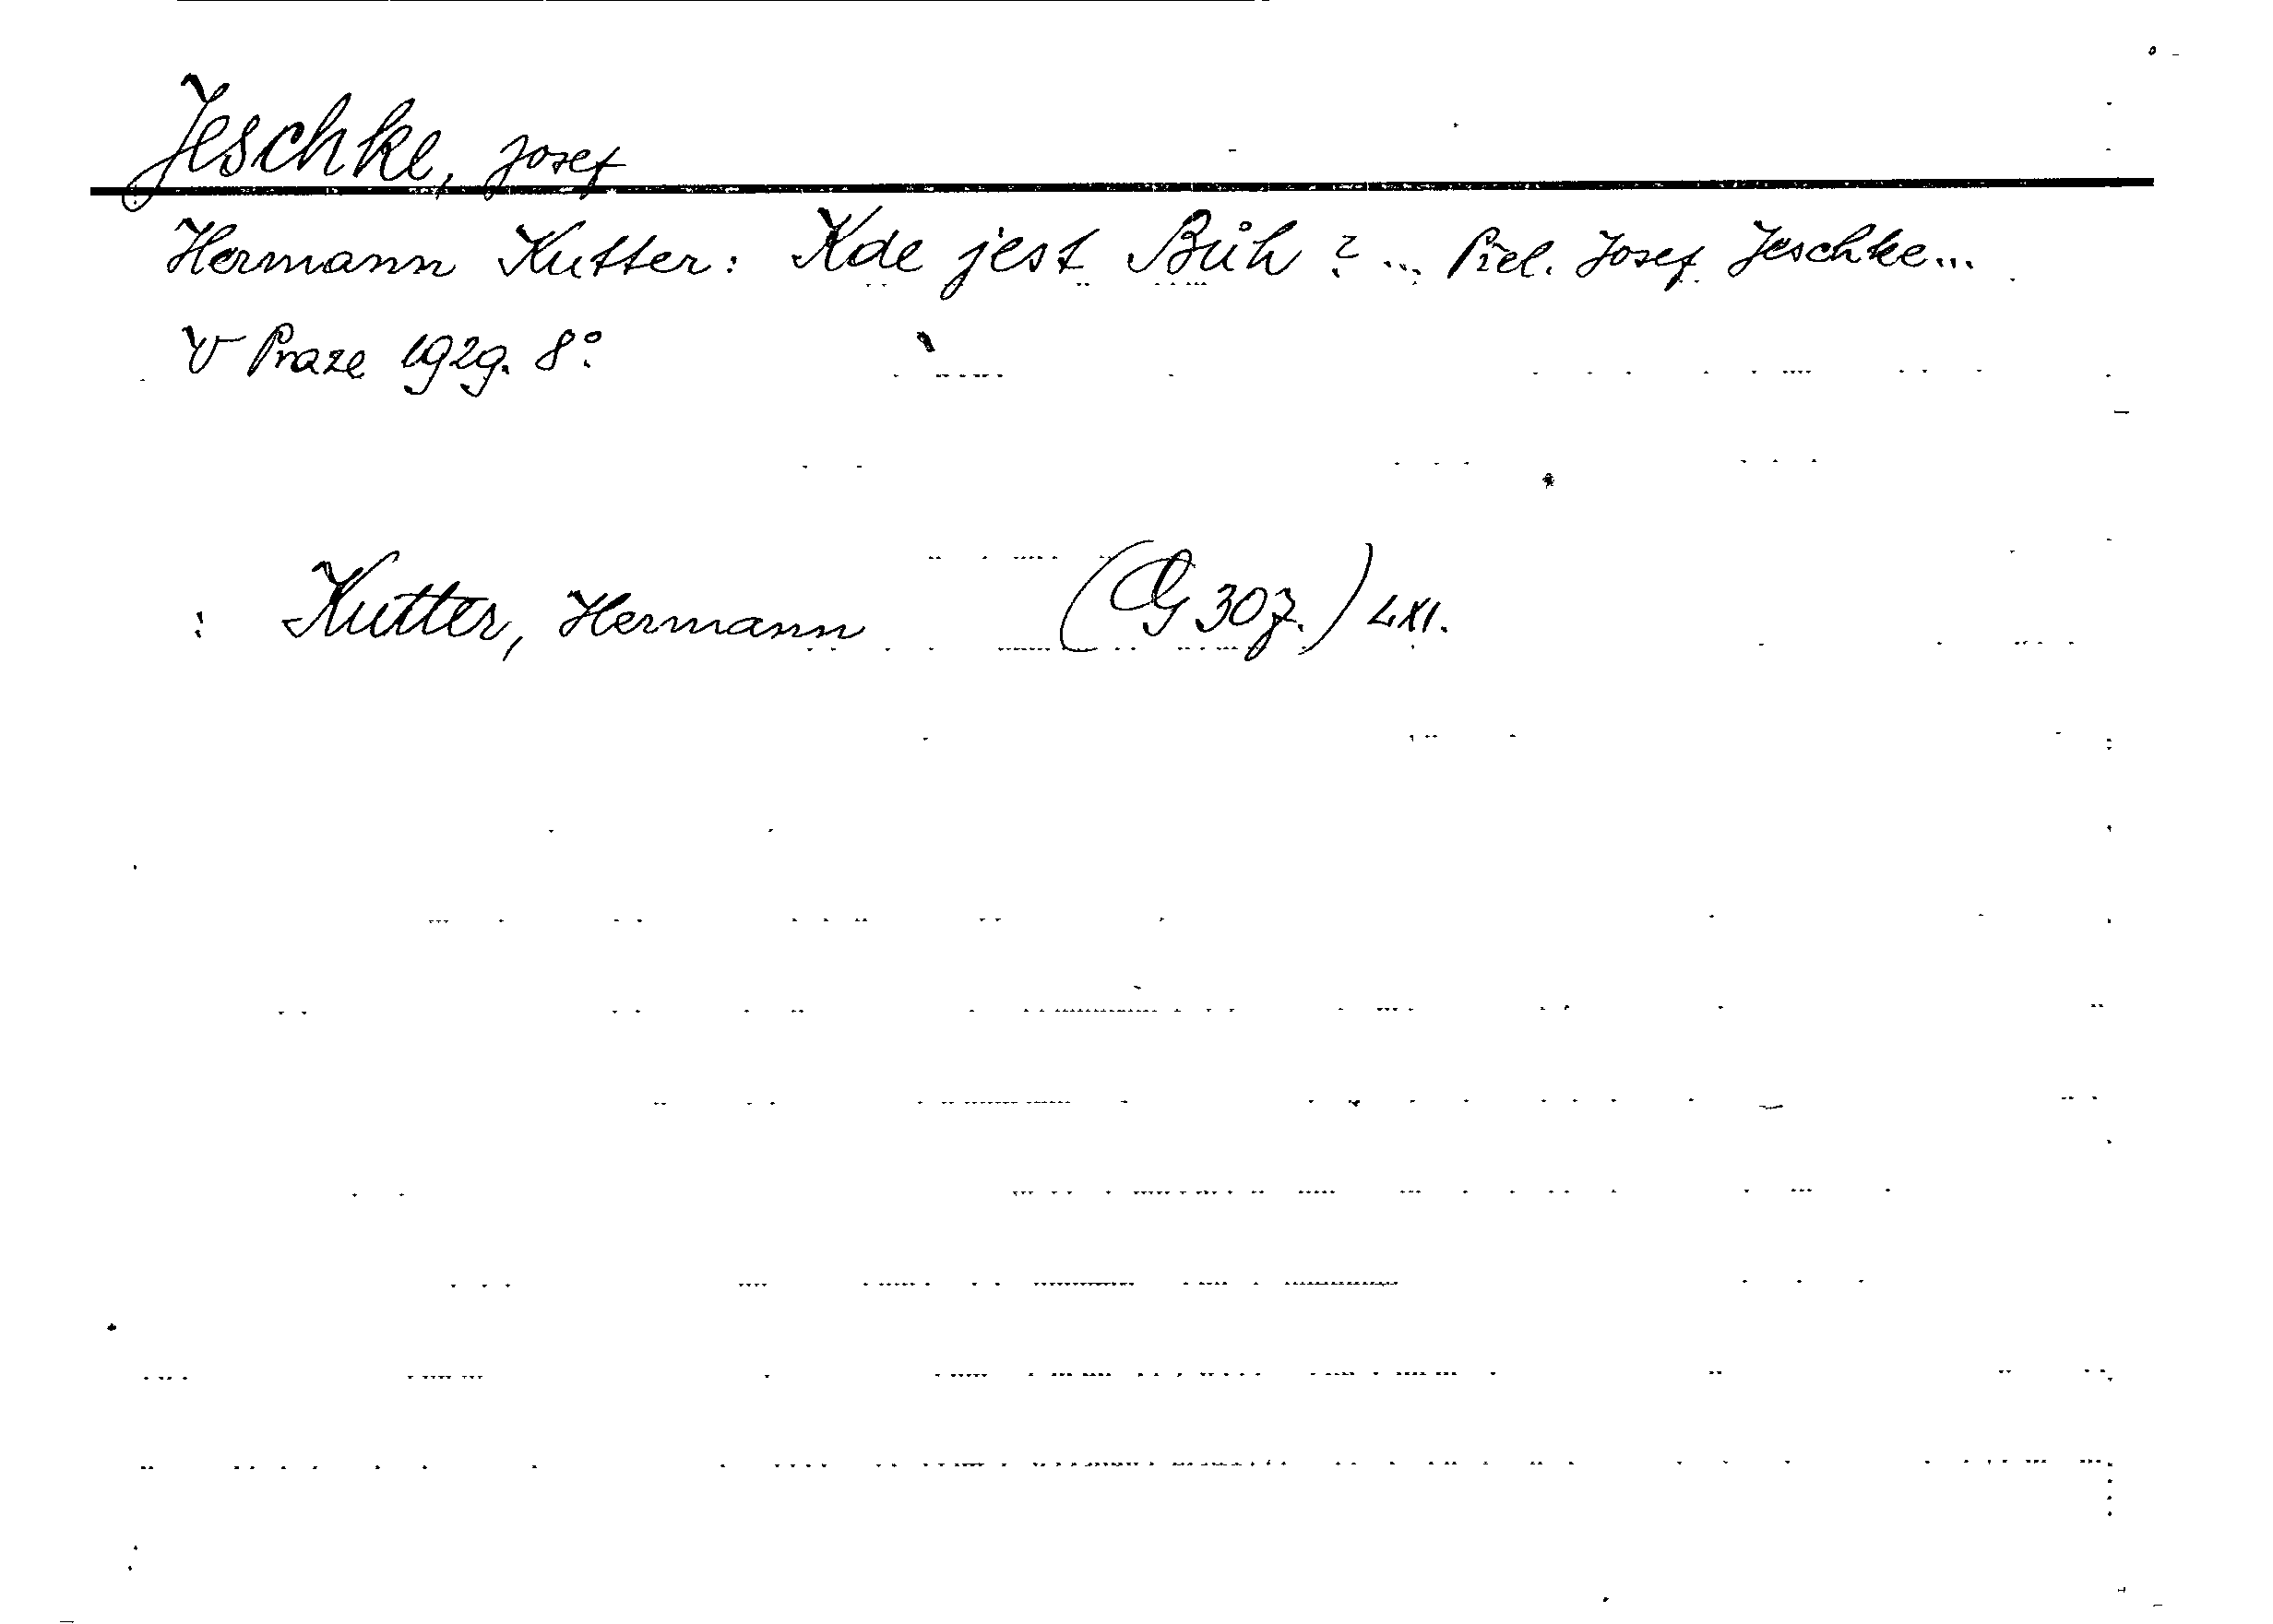 Jeschke, Josef
Hermann Kutter: Kde jest Bůh? ... Přel. Josef Jeschke...
V Praze 1929. 8°.
: Kutter, Hermann (G 307.) LXI.